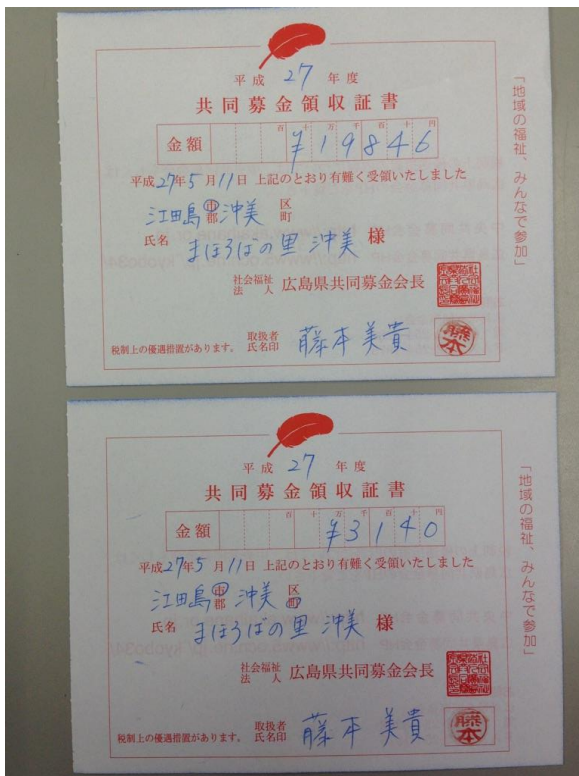 平成 27 年度
共同募金領収証書
金額 百 十 万 千 百 十 円
¥19846
平成27年5月11日 上記のとおり有難く受領いたしました
江田島 市 郡 沖美 区 町
氏名 まほろばの里 沖美 様
社会福祉法人 広島県共同募金会長
税制上の優遇措置があります。 取扱者氏名印 藤本美貴 藤本
「地域の福祉、みんなで参加」
平成 27 年度
共同募金領収証書
金額 百 十 万 千 百 十 円
¥3140
平成27年5月11日 上記のとおり有難く受領いたしました
江田島 市 郡 沖美 区 町
氏名 まほろばの里 沖美 様
社会福祉法人 広島県共同募金会長
税制上の優遇措置があります。 取扱者氏名印 藤本美貴 藤本
「地域の福祉、みんなで参加」